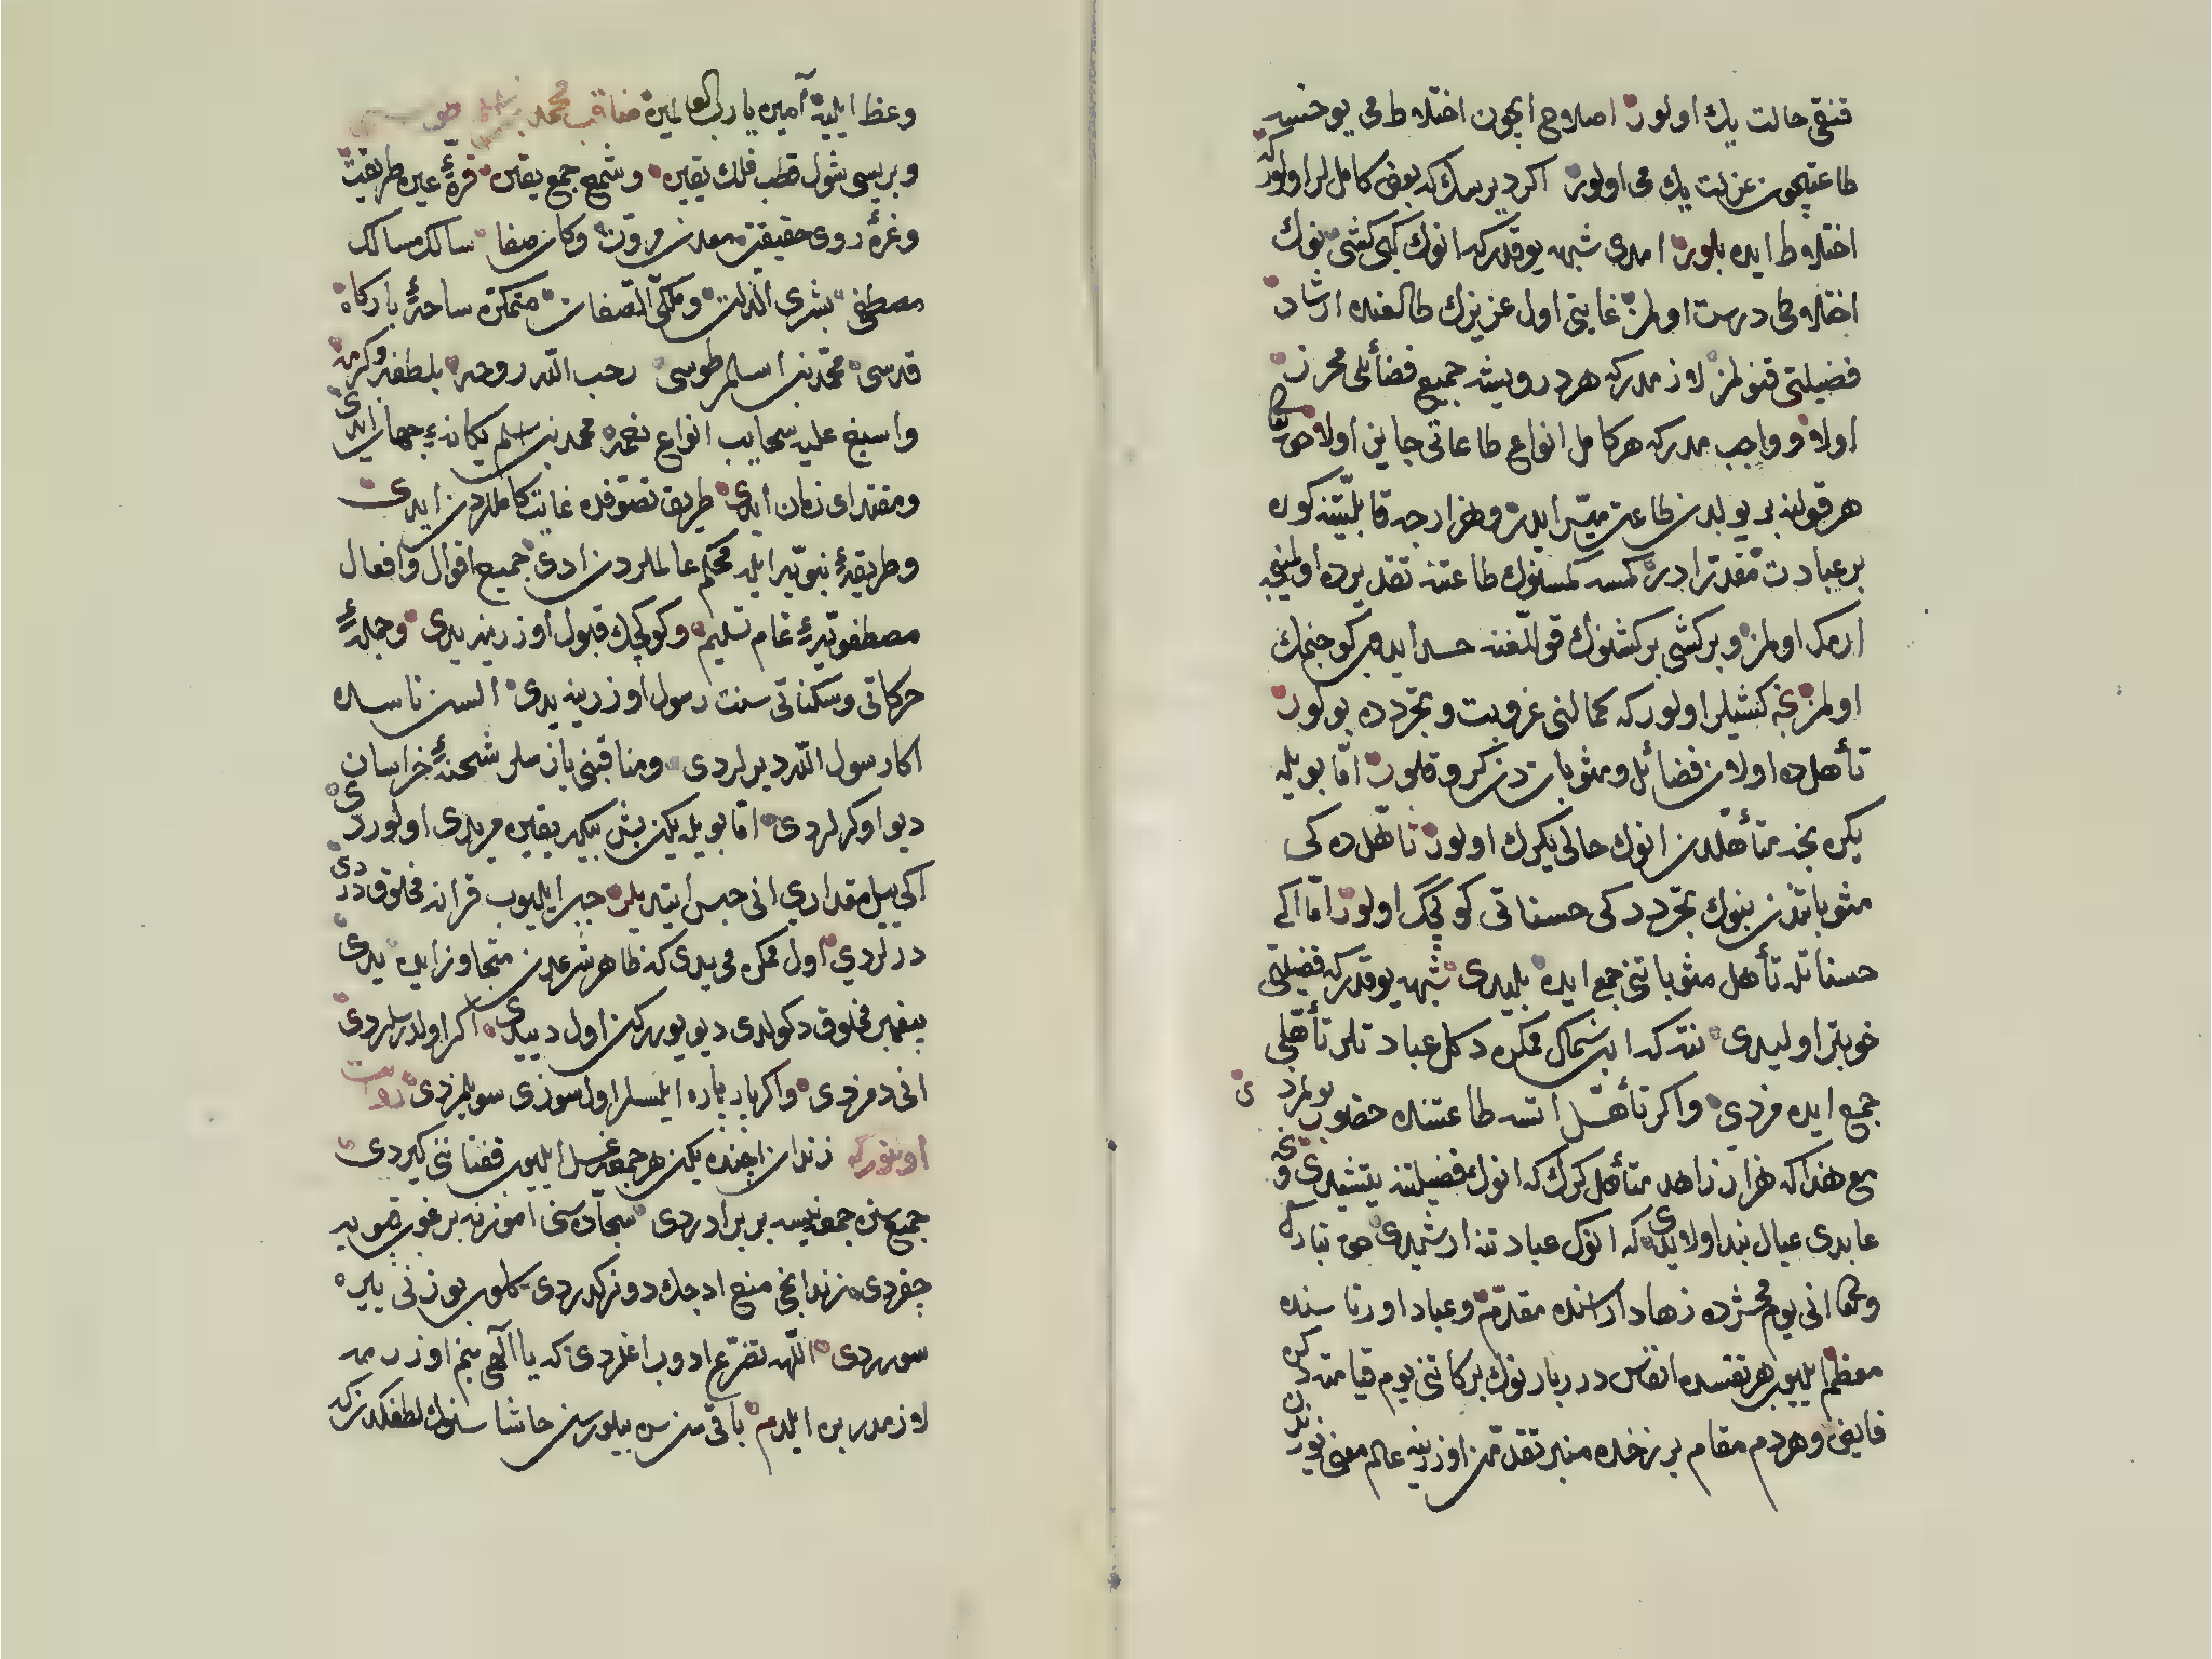 قنقی حالت یك اولور اصلاح ایچون اختلاط می یوخسه
طاعتیچون عزلت یك می اولور اکر دیرسك که بعض کامللر اولور که
اختلاط ایده بلور امدی شبهه یوقدر که انوك کبی کشی نوك
اختلاطی درست اولمز غایتی اول عزیزك طالعنده ارشاد
فضیلتی قنولمز لازمدر که هر درویشه جمیع فضائلی محرز
اولا و واجب مدر که هر کامل انواع طاعاتی جایز اولا حق تعالی
هر قولنه بر یولدن طاعت میسر ایدر و هزار جه قابلیتنه کوره
بر عبادت مقدر ادر کمسه کمسنوك طاعتنه تقدیرده اولمینجه
ارمك اولمز و بر کشی بر کشنوك قوللغنه حسد ایدوب کوجنمك
اولمز نجه کشیلر اولور که کمالنی عزوبت و تجردده بولور
تأهلده اولان فضائل و مثوباتدن کرو قلور اما بویله
یکره نجه متأهلدن انوك حالی یکرك اولور تأهلده کی
مثوباتدن بنوك تجرد دکی حسناتی کوکچك اولور اما اکر
حسناتله تأهل مثوباتنی جمع ایده بلیدی شبهه یوقدر که فضیلتی
خوبتر اولیدی نته که ابن شمال ممکن دکل عبادتلر تأهلی
جمع ایده مزدی و اکر تأهل اتسه طاعتنده حضور بولمزدی
مع هذا که هزار زاهد متأهل کرك که انوك فضیلتنه یتشیدی و نجه
عابدی عیال بند اولایدی که انوك عبادتنه ارشمدی حق تبارك
و تعالی انی یوم محشرده زهاد اراسنده مقدم و عباد اورتاسنده
معظم ایلیوب هر نفسده انفاس درربارنوك برکاتنی یوم قیامته دکن
فایض و هر دم مقام برزخده منبر تقدمن اوزرینه عالم معنی نورلرن
وعظ ایلیه آمین یا رب العالمین مناقب محمد بن اسلم طوسی
و بریسی شول قطب فلك یقین و شمع جمع یقین قرۀ عین طریقت
و غرۀ روی حقیقت معدن مروت و کان صفا سالك مسالك
مصطفی بشری الذات و ملکی الصفات متمکن ساحۀ بارکاه
قدسی محمد بن اسلم طوسی رحب الله روحه بلطفه و کرمه
و اسبغ علیه سحایب انواع نعمه محمد بن اسلم یکانۀ جهان ایدی
و مقتدای زمان ایدی طریق تصوفده غایت کامللردن ایدی
و طریقۀ نبویه ایله محکم عالملردن ادی جمیع اقوال و افعال
مصطفویه تمام تسلیم و کوکچك قبول اوزرینه یدی و جملۀ
حرکاتی و سکناتی سنت رسول اوزرینه یدی السن ناسده
اکا رسول الله دیرلردی و مناقبنی یازملر شحنۀ خراسان
دیو اوکرلردی اما بویله یکن بش بیکه یقین مریدی اولوردی
اکی ییل مقداری انی حبس ایتدیلر جبر ایلیوب قرانه مخلوق دردی
درلردی اول ممکن می یدی که ظاهر شرعدن متجاوز ایده یدی
پیغمبر مخلوق دکولدی دیو یوررکن اول دییدی اکر اولدرسلردی
انی دمزدی و اکر پاره پاره ایلسلر اول سوزی سویلمزدی روایت
اولنور که زندان اجنده یکن هر جمعه غسل ایلیوب قفتاننی کیردی
جمیع سنن جمعه نیسه بر بر ادردی سجاده سنی اموزنه برغوب قویه
چقردی زندانجی منع ادجك دونرکدردی کلوب یوزنی یایره
سوردی الله تضرع ادوب اغلردی که یا الهی بنم اوزرمه
لازمدر بن ایلدم باقی سن بیلورسن حاشا سنوك لطفکدن که